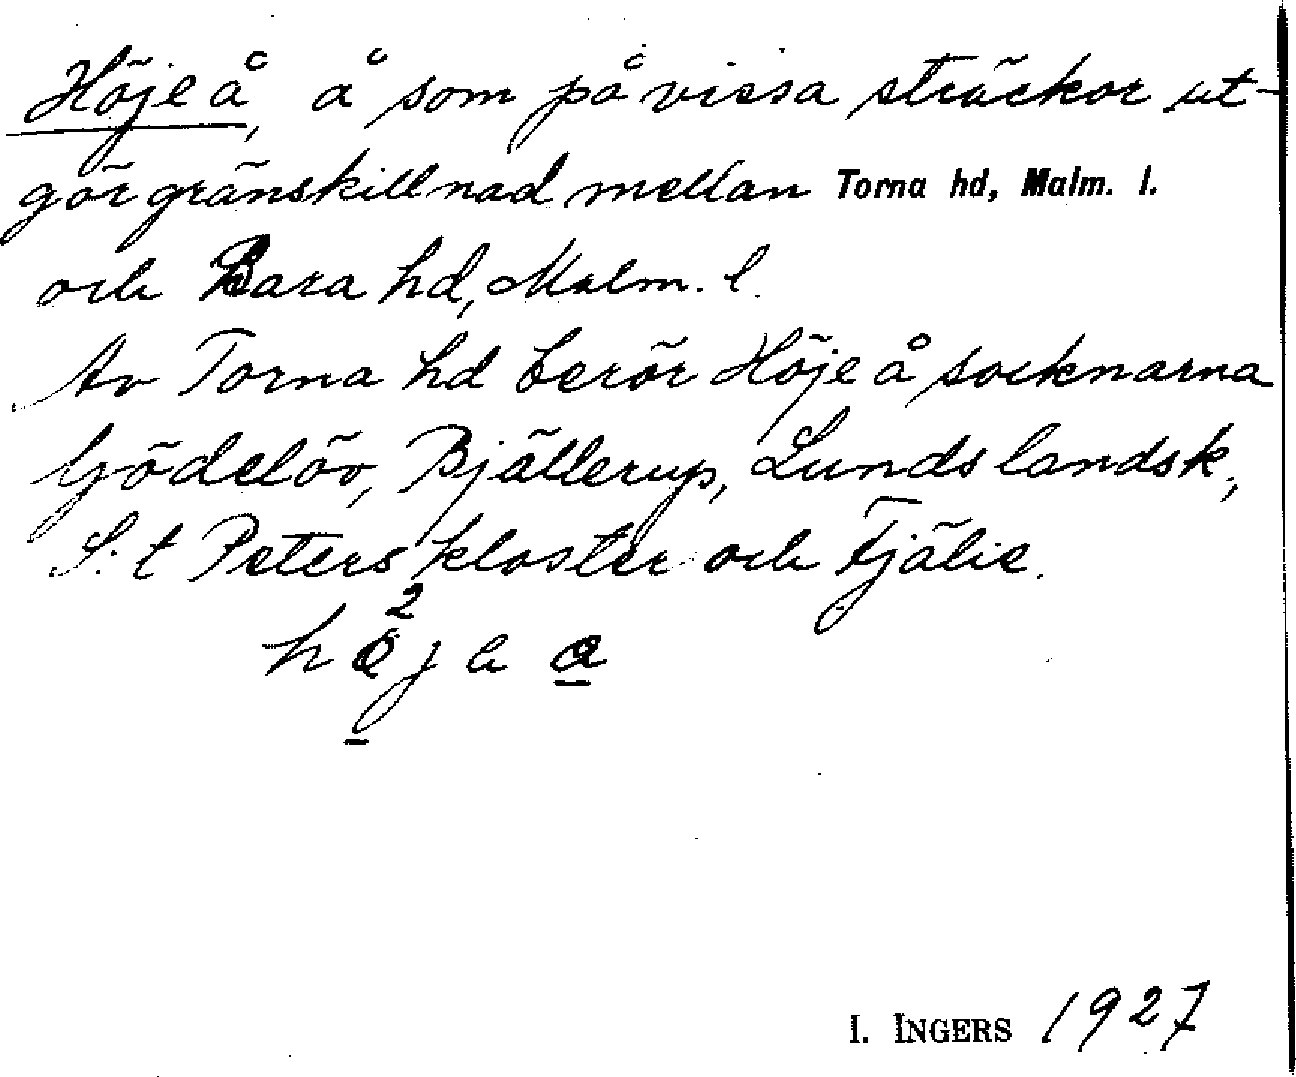 Höje å, å som på vissa sträckor ut-
gör gränskillnad mellan Torna hd, Malm. l.
och Bara hd, Malm. l.
Av Torna hd berör Höje å socknarna
Gödelöv, Bjällerup, Lunds landsk,
S:t Peters kloster och Fjälie.
I. INGERS 1927